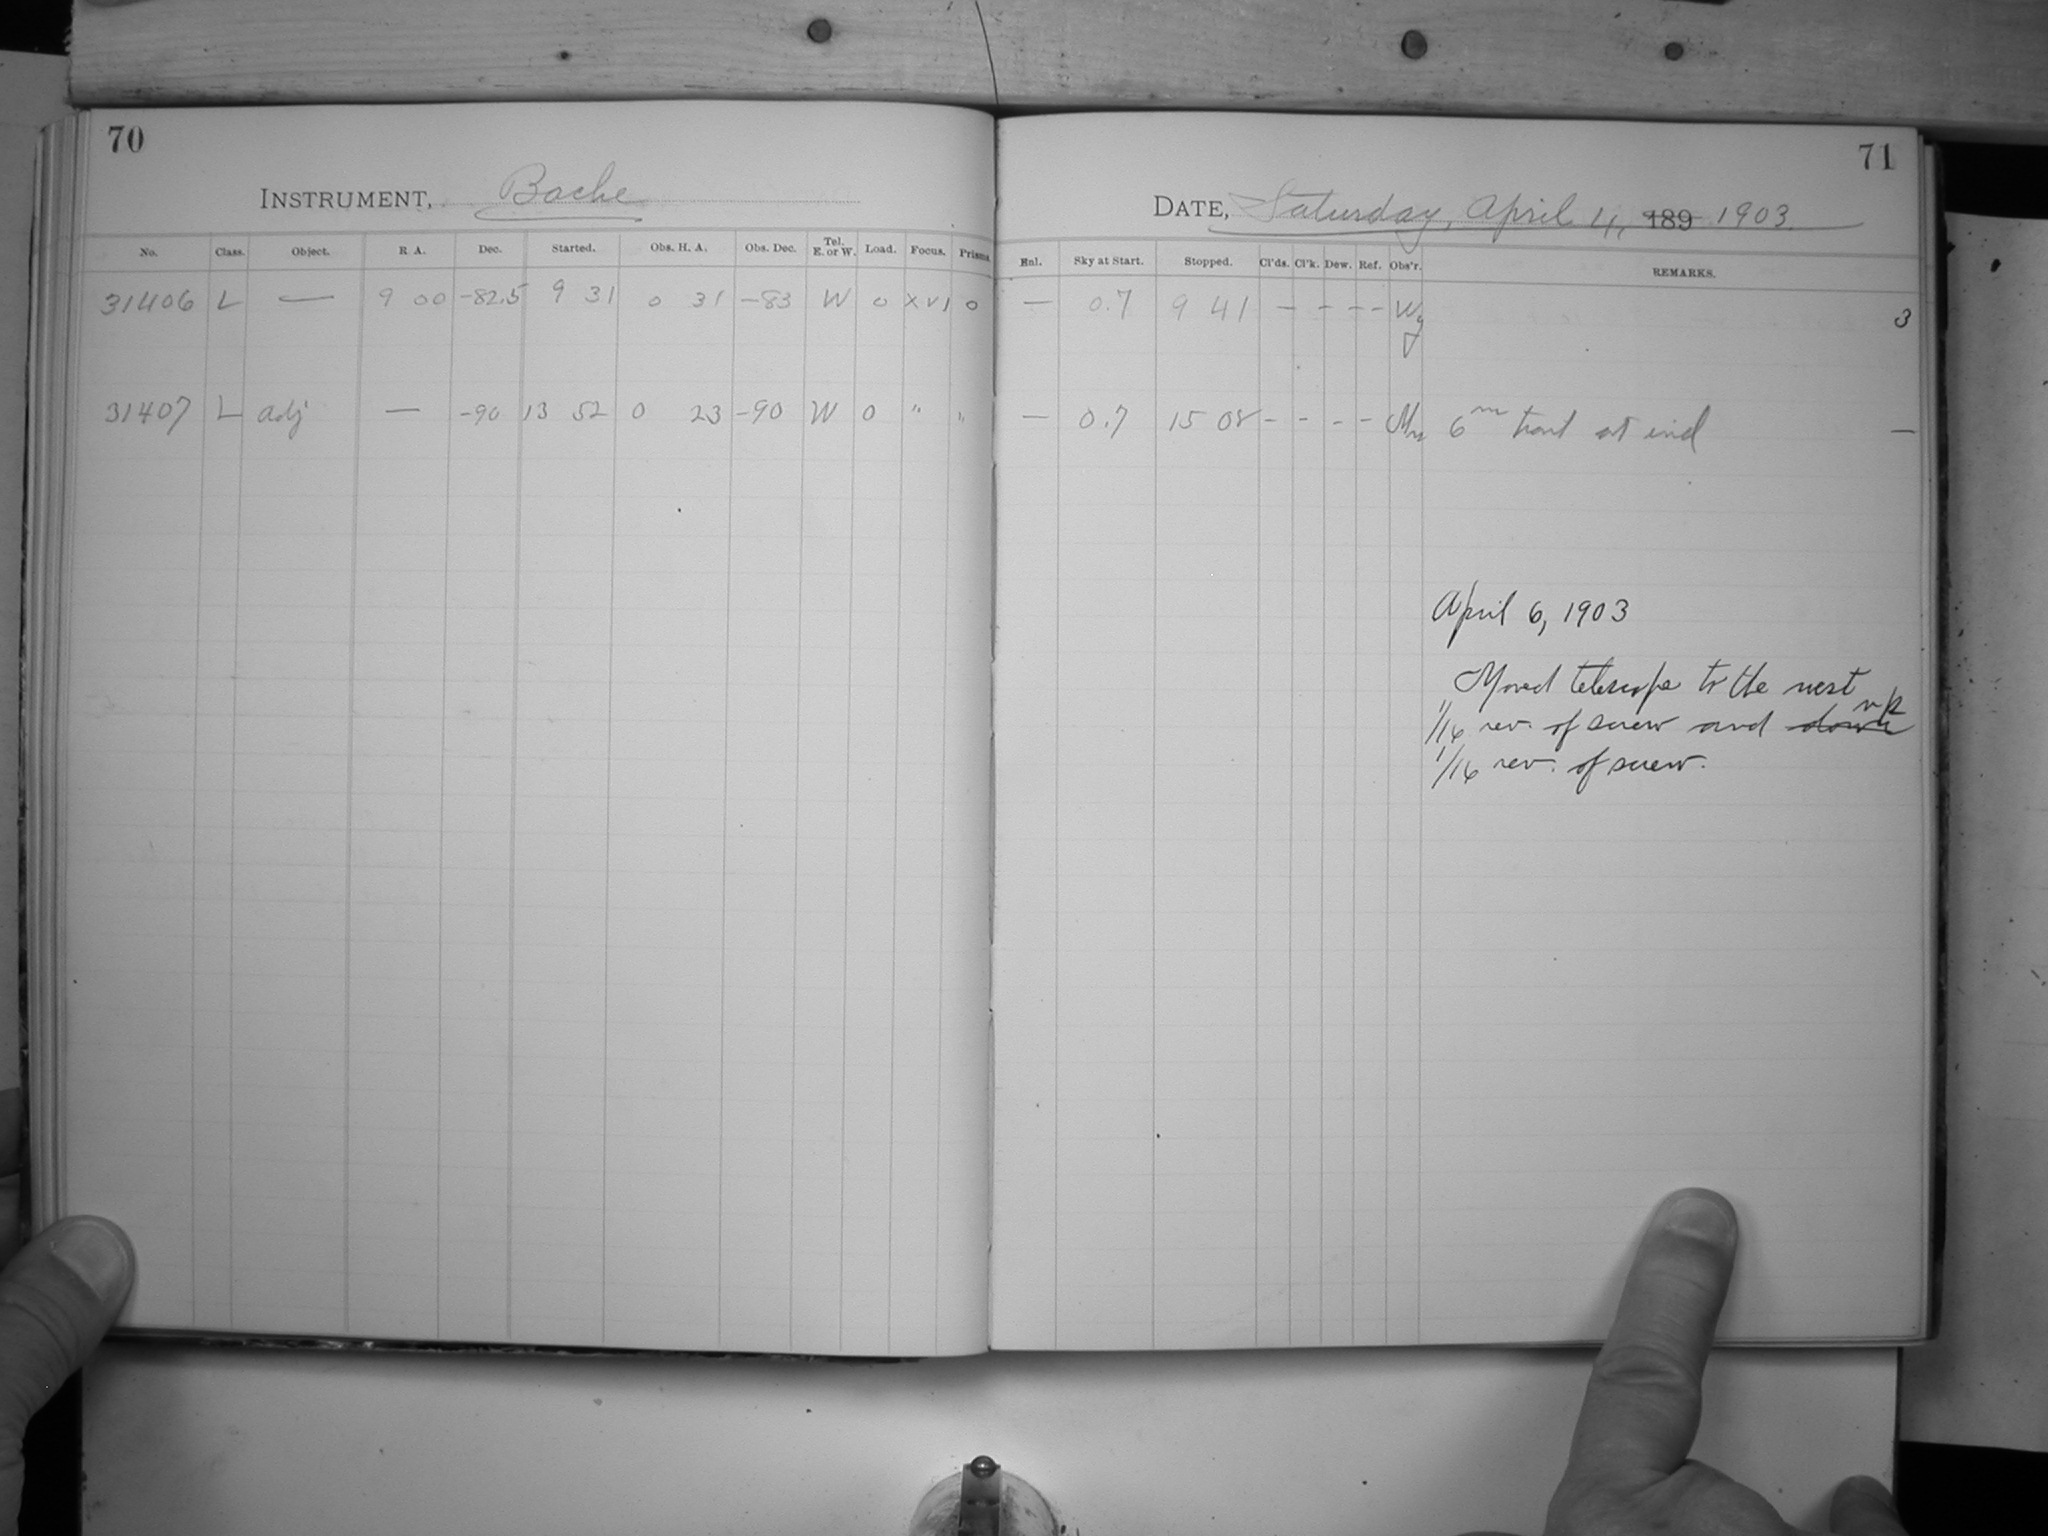 70
INSTRUMENT, Bache
No. Class. Object. R A. Dec. Started. Obs. H. A. Obs. Dec. Tel. E. or W. Load. Focus. Prisms.
31406 L — 9 00 -82.5 9 31 0 31 -83 W 0 XVI 0
31407 L adj — -90 13 52 0 23 -90 W 0 " "
71
DATE, Saturday, April 4, 189 1903.
Enl. Sky at Start. Stopped. Cl'ds. Cl'k. Dew. Ref. Obs'r. REMARKS.
— 0.7 9 41 - - - - Wy 3
— 0.7 15 08 - - - - 6m trail at end —
April 6, 1903
Moved telescope to the west
1/16 rev. of screw and down up
1/16 rev. of screw.